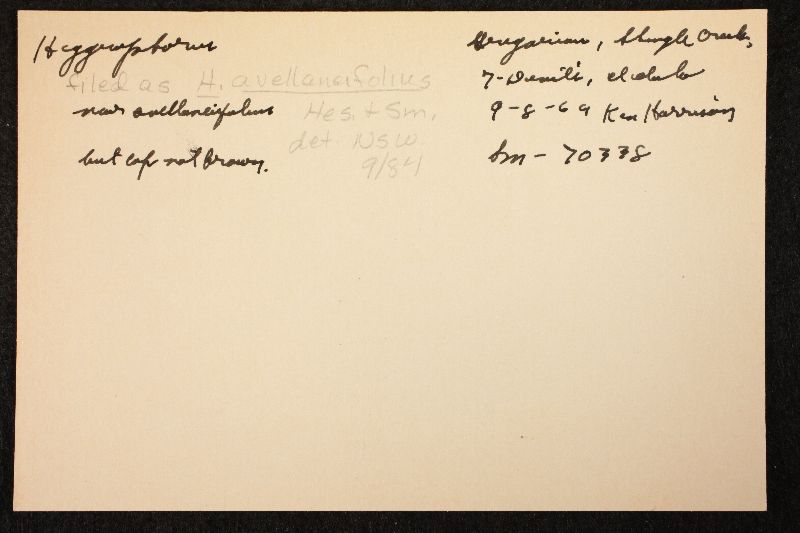 Hygrophorus
filed as H. avellaneifolius
near avellaneifolius Hes. + Sm,
det. NSW
but cap not brown. 9/84
Gregarious, Slough Creek,
7-Devils, Idaho
9-8-64 Ken Harrison
Sm - 70338